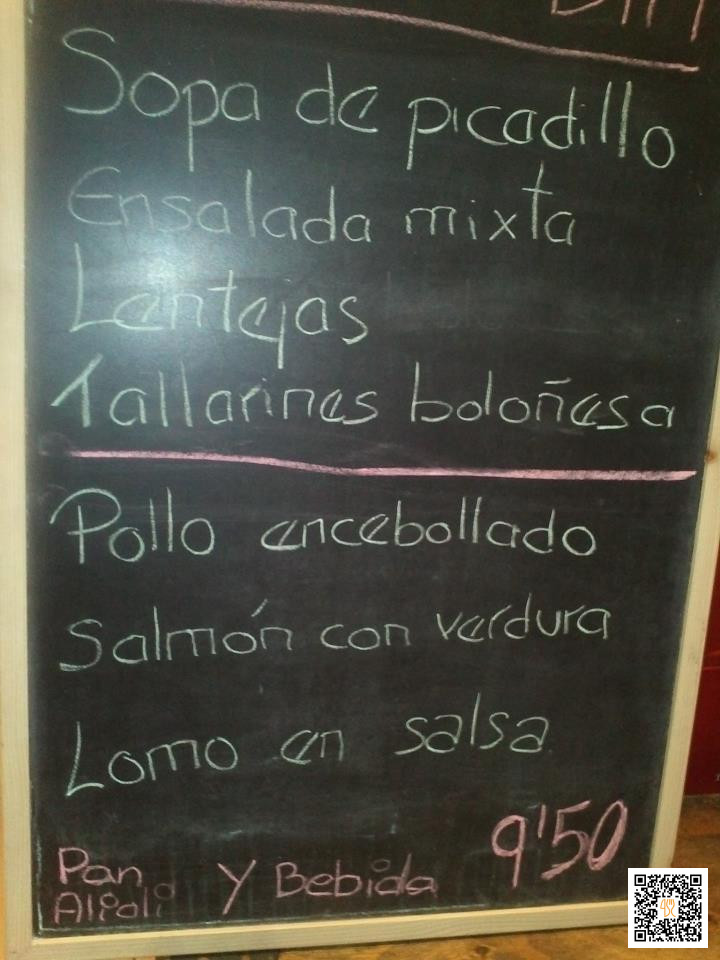 Sopa de picadillo
Ensalada mixta
Lentejas
Tallarines boloñesa
Pollo encebollado
Salmón con verdura
Lomo en salsa
9'50
Pan Y Bebida
Alioli